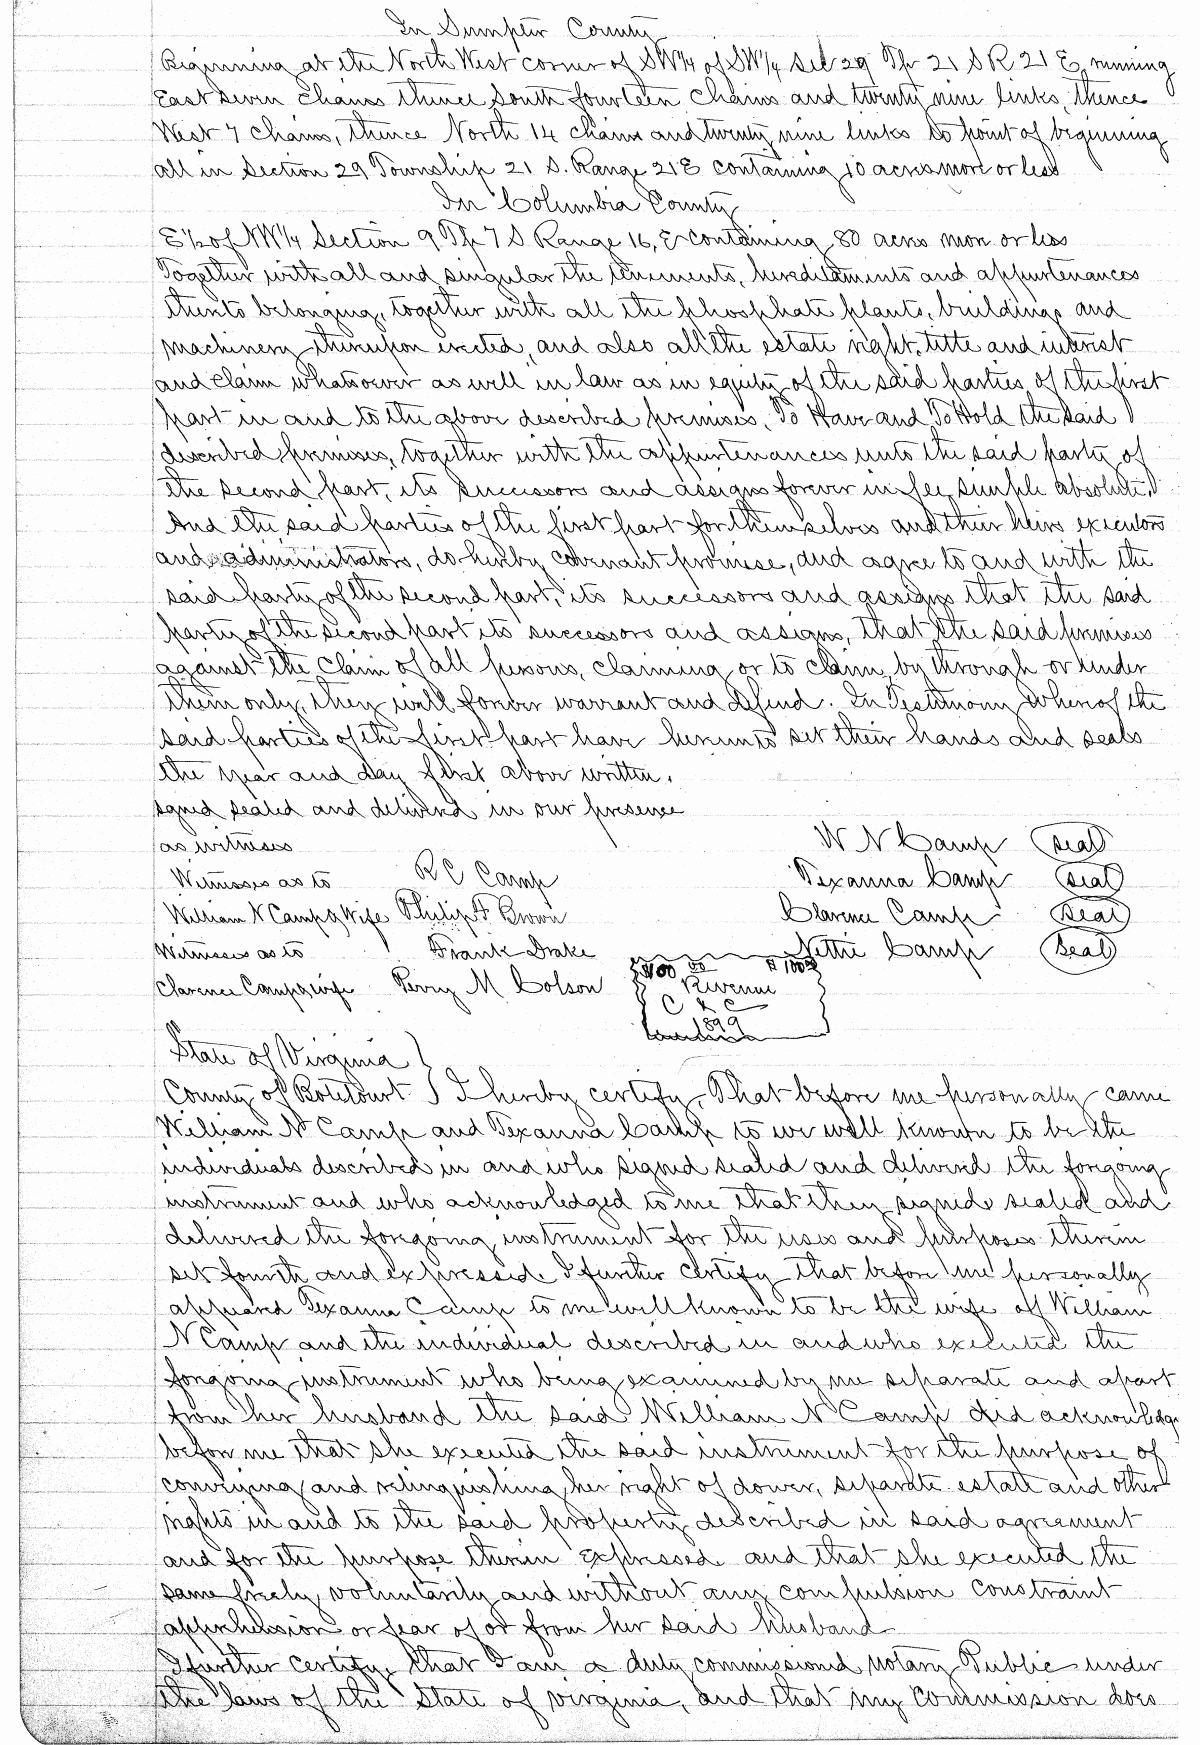 In Sumpter County
Beginning at the North West corner of SW¼ of SW¼ Sec 29 Tp 21 S R 21 E, running
East seven chains thence South fourteen chains and twenty nine links, thence
West 7 chains, thence North 14 chains and twenty nine links to point of beginning
all in Section 29 Township 21 S. Range 21 E containing 10 acres more or less
In Columbia County
E½ of NW¼ Section 9 Tp 7 S Range 16, E containing 80 acres more or less
Together with all and singular the tenements, hereditaments and appurtenances
thereto belonging, together with all the phosphate plants, buildings and
machinery thereupon erected, and also all the estate right, title and interest
and claim whatsoever as well in law as in equity of the said parties of the first
part in and to the above described premises, To Have and To Hold the said
described premises, together with the appurtenances unto the said party of
the second part, its successors and assigns forever in fee simple absolute,
And the said parties of the first part for themselves and their heirs executors
and administrators, do hereby covenant promise, and agree to and with the
said party of the second part, its successors and assigns that the said
party of the second part its successors and assigns, that the said premises
against the claim of all persons, claiming or to claim, by through or under
them only, they will forever warrant and defend. In Testimony Whereof the
said parties of the first part have hereunto set their hands and seals
the year and day first above written.
signed sealed and delivered in our presence
as witnesses W N Camp (seal)
Witnesses as to R C Camp Texanna Camp (seal)
William N Camp & Wife Philip F Brown Clarence Camp (Seal)
Witnesses as to Frank Drake Nettie Camp (Seal)
Clarence Camp & wife Perry M Colson $400 00 $100
Revenue
C & C
1899
State of Virginia }
County of Botetourt } I hereby certify, That before me personally came
William N Camp and Texanna Camp to me well known to be the
individuals described in and who signed sealed and delivered the foregoing
instrument and who acknowledged to me that they signed sealed and
delivered the foregoing instrument for the uses and purposes therein
set fourth and expressed. I further certify that before me personally
appeared Texanna Camp to me well known to be the wife of William
N Camp and the individual described in and who executed the
forgoing instrument who being examined by me separate and apart
from her husband the said William N Camp did acknowledge
before me that she executed the said instrument for the purpose of
conveying and relinquishing her right of dower, separate estate and other
rights in and to the said property described in said agreement
and for the purpose therein expressed and that she executed the
same freely voluntarily and without any compulsion constraint
apprehension or fear of or from her said husband
I further certify, that I am a duly commissioned Notary Public under
the laws of the State of Virginia, and that my commission does